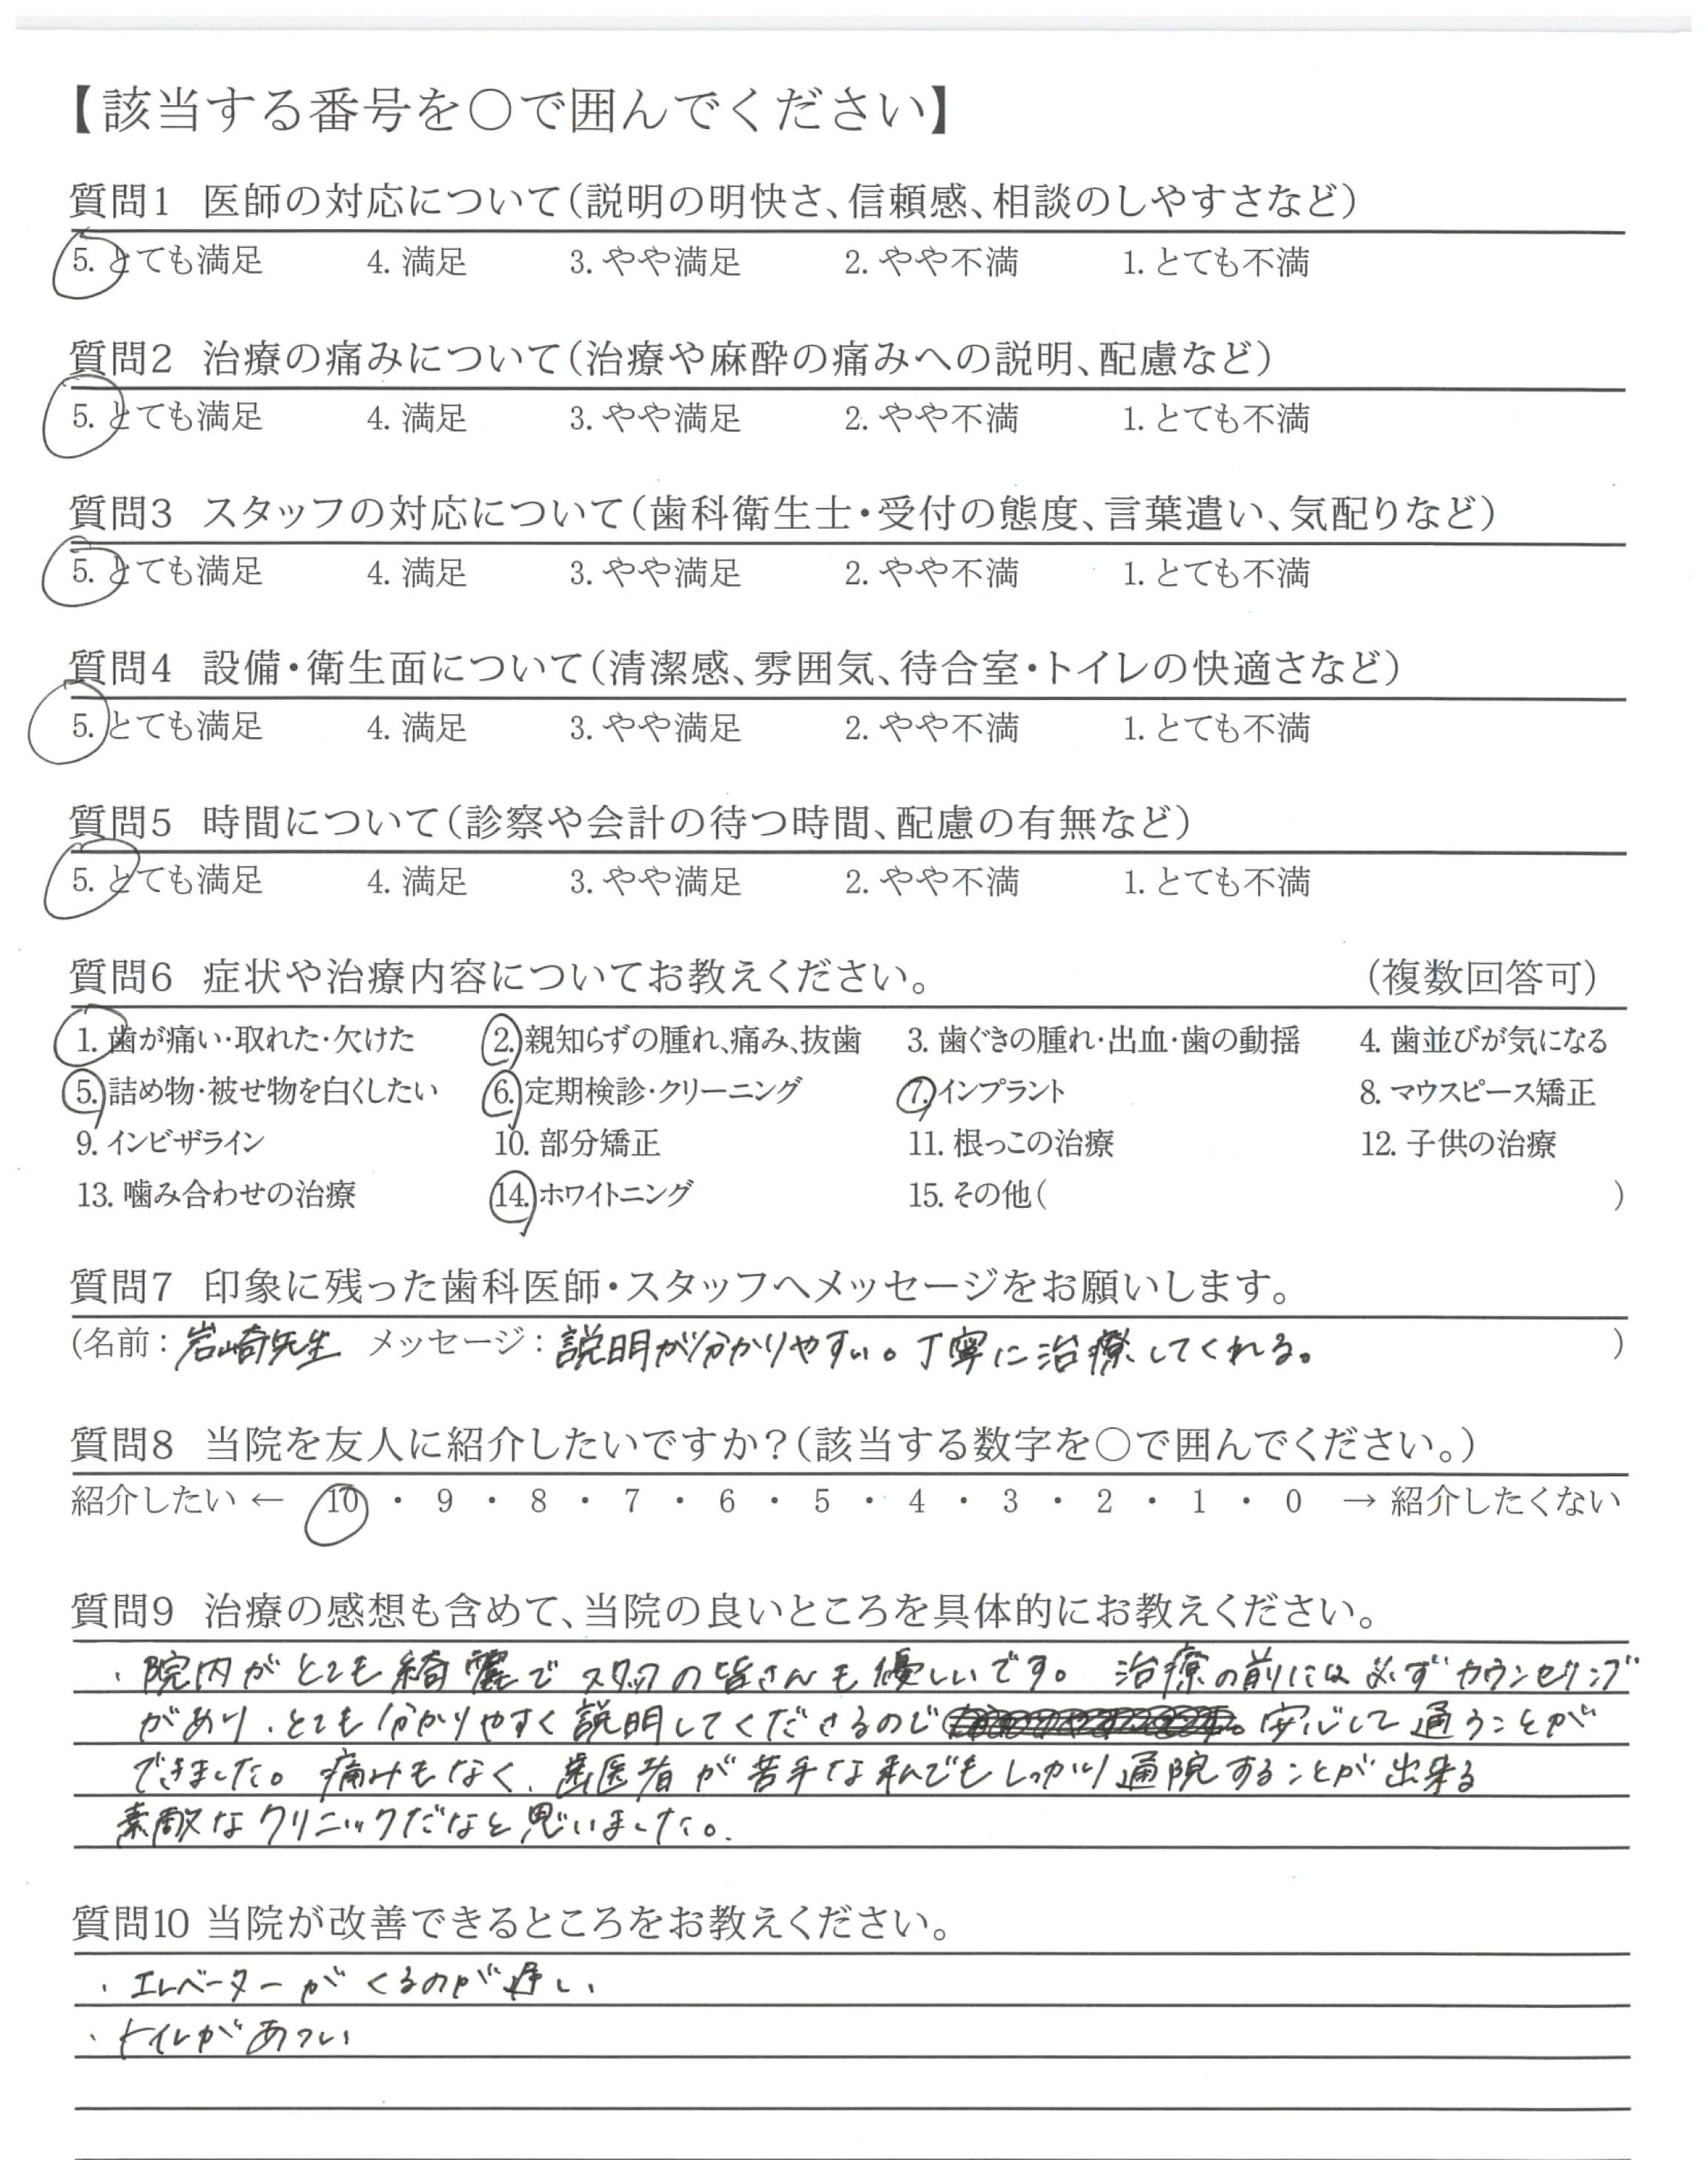 【該当する番号を○で囲んでください】
質問1 医師の対応について(説明の明快さ、信頼感、相談のしやすさなど)
5. とても満足 4. 満足 3. やや満足 2. やや不満 1. とても不満
質問2 治療の痛みについて(治療や麻酔の痛みへの説明、配慮など)
5. とても満足 4. 満足 3. やや満足 2. やや不満 1. とても不満
質問3 スタッフの対応について(歯科衛生士・受付の態度、言葉遣い、気配りなど)
5. とても満足 4. 満足 3. やや満足 2. やや不満 1. とても不満
質問4 設備・衛生面について(清潔感、雰囲気、待合室・トイレの快適さなど)
5. とても満足 4. 満足 3. やや満足 2. やや不満 1. とても不満
質問5 時間について(診察や会計の待つ時間、配慮の有無など)
5. とても満足 4. 満足 3. やや満足 2. やや不満 1. とても不満
質問6 症状や治療内容についてお教えください。 (複数回答可)
1. 歯が痛い・取れた・欠けた 2. 親知らずの腫れ、痛み、抜歯 3. 歯ぐきの腫れ・出血・歯の動揺 4. 歯並びが気になる
5. 詰め物・被せ物を白くしたい 6. 定期検診・クリーニング 7. インプラント 8. マウスピース矯正
9. インビザライン 10. 部分矯正 11. 根っこの治療 12. 子供の治療
13. 噛み合わせの治療 14. ホワイトニング 15. その他( )
質問7 印象に残った歯科医師・スタッフへメッセージをお願いします。
(名前：岩崎先生 メッセージ：説明が分かりやすい。丁寧に治療してくれる。 )
質問8 当院を友人に紹介したいですか？(該当する数字を○で囲んでください。)
紹介したい ← 10 ・ 9 ・ 8 ・ 7 ・ 6 ・ 5 ・ 4 ・ 3 ・ 2 ・ 1 ・ 0 → 紹介したくない
質問9 治療の感想も含めて、当院の良いところを具体的にお教えください。
・院内がとても綺麗でスタッフの皆さんも優しいです。 治療の前には必ずカウンセリング
があり、とても分かりやすく説明してくださるので 安心して通うことが
できました。痛みもなく、歯医者が苦手な私でもしっかり通院することが出来る
素敵なクリニックだなと思いました。
質問10 当院が改善できるところをお教えください。
・エレベーターがくるのが遅い
・トイレがあつい